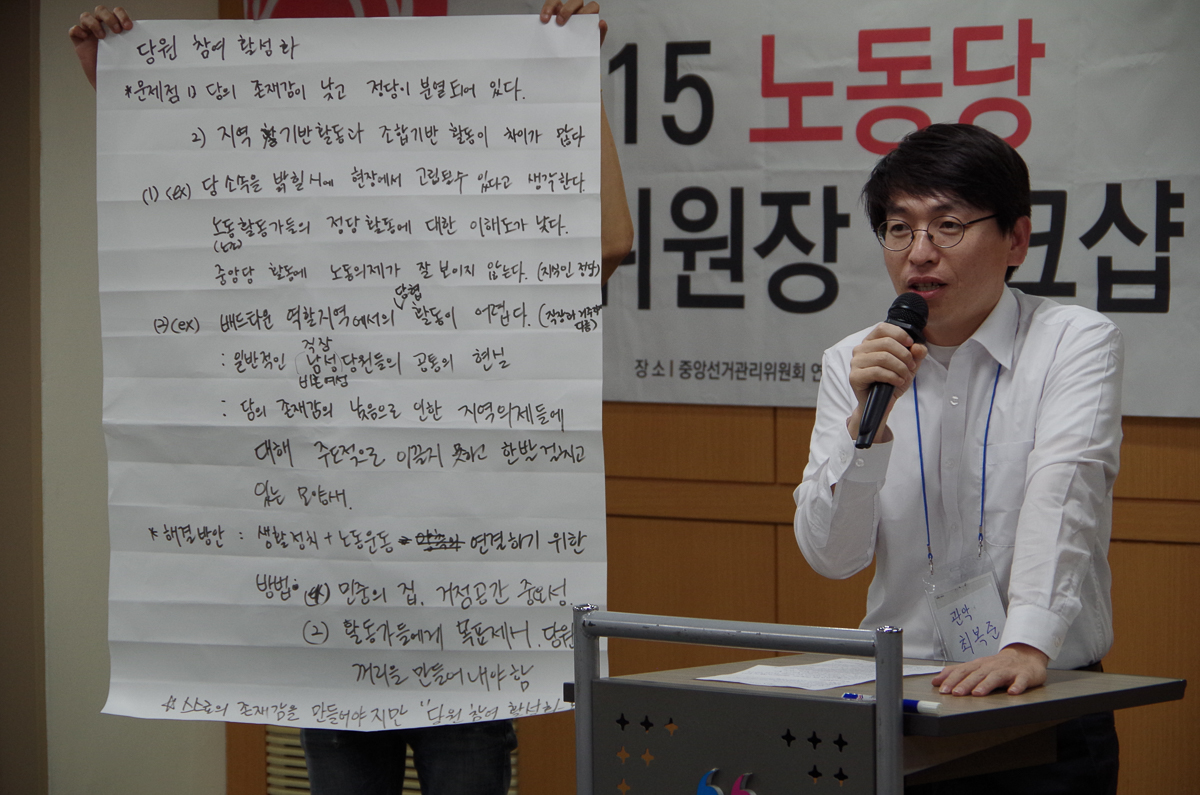 당원 참여 활성화
*문제점 1) 당의 존재감이 낮고 정당이 분열되어 있다.
2) 지역 기반활동과 조합기반 활동이 차이가 많다
(1) (ex) 당 소속을 밝힐시에 현장에서 고립될수 있다고 생각한다.
노동활동가들의 정당활동에 대한 이해도가 낮다.
중앙당 활동에 노동의제가 잘 보이지 않는다. (지역인 정보)
(2) (ex) 베드타운 역할지역에서의 당협 활동이 어렵다. (직장과 거주지 다름)
: 일반적인 직장 남성당원들의 공통의 현실
비혼여성
: 당의 존재감의 낮음으로 인한 지역의제들에
대해 주도적으로 이끌지 못하고 한발 걸치고
있는 모양새.
* 해결방안 : 생활정치 + 노동운동 연결하기 위한
방법: (1) 민중의 집, 거점공간 중요성.
(2) 활동가들에게 목표제시. 당원
꺼리를 만들어내야 함
* 스스로의 존재감을 만들어야지만 "당원 참여 활성화
15 노동당
위원장 크샵
장소 | 중앙선거관리위원회 연
관악
최복준